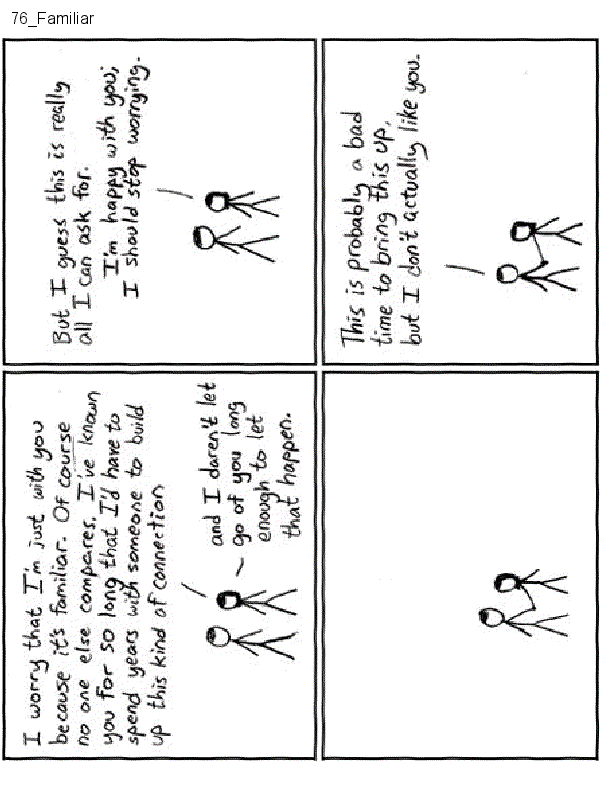 76_Familiar
I worry that I'm just with you
because it's familiar. Of course
no one else compares. I've known
you for so long that I'd have to
spend years with someone to build
up this kind of connection
and I daren't let
go of you long
enough to let
that happen.
But I guess this is really
all I can ask for.
I'm happy with you;
I should stop worrying.
This is probably a bad
time to bring this up,
but I don't actually like you.